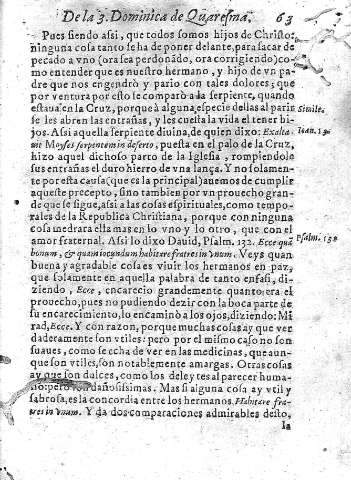 De la 3. Dominica de Quaresma. 63
Pues siendo assi, que todos somos hijos de Christo:
ninguna cosa tanto se ha de poner delante, para sacar de
pecado a vno (ora sea perdonado, ora corrigiendo) co-
mo entender que es nuestro hermano, y hijo de vn pa-
dre que nos engendrò y pario con tales dolores; que
por ventura por esto se comparò a la serpiente, quando
estaua en la Cruz, porque à alguna especie dellas al parir
Simile.
se les abren las entrañas, y les cuesta la vida el tener hi-
jos. Assi aquella serpiente diuina, de quien dixo: Exalta
Ioan. 3.
uit Moyses serpentem in deserto, puesta en el palo de la Cruz,
hizo aquel dichoso parto de la Iglesia, rompiendole
sus entrañas el duro hierro de vna lança. Y no solamen-
te por esta causa (que es la principal) auemos de cumplir
aqueste precepto, sino tambien por vn prouecho gran-
de que se sigue, assi a las cosas espirituales, como tempo-
rales de la Republica Christiana, porque con ninguna
cosa medrara ella mas en lo vno y lo otro, que con el
amor fraternal. Assi lo dixo Dauid, Psalm. 132. Ecce quã
Psalm. 132
bonum, & quam iocundum habitare fratres in vnum. Veys quan
buena y agradable cosa es viuir los hermanos en paz,
que solamente en aquella palabra de tanto enfasi, di-
ziendo, Ecce, encarecio grandemente quanto era el
prouecho, pues no pudiendo dezir con la boca parte de
su encarecimiento, lo encaminò a los ojos, diziendo: Mi
rad, Ecce. Y con razon, porque muchas cosas ay que ver
daderamente son vtiles: pero por el mismo caso no son
suaues, como se echa de ver en las medicinas, que aun-
que son vtiles, son notablemente amargas. Otras cosas
ay que son dulces, como los deleytes al parecer huma-
no: pero son dañosissimas. Mas si alguna cosa ay vtil y
sabrosa, es la concordia entre los hermanos. Habitare fra-
tres in vnum. Y da dos comparaciones admirables desto,
la